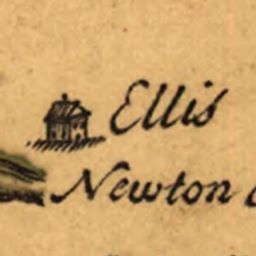 Ellis
Newton